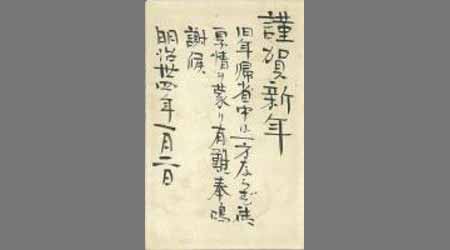 謹賀新年
旧年帰省中は一方ならず御
厚情を蒙り有難奉鳴
謝候
明治卅四年一月二日